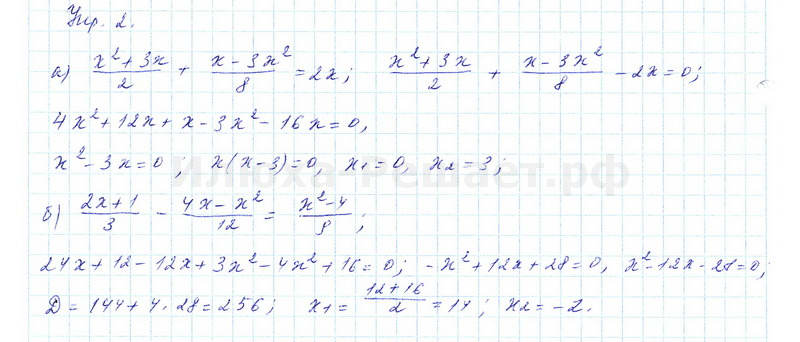 Упр. 2.
а) (x² + 3x)/2 + (x - 3x²)/8 = 2x; (x² + 3x)/2 + (x - 3x²)/8 - 2x = 0;
4x² + 12x + x - 3x² - 16x = 0,
x² - 3x = 0; x(x - 3) = 0, x₁ = 0, x₂ = 3;
Илюха-Решает.рф
б) (2x + 1)/3 - (4x - x²)/12 = (x² - 4)/9;
24x + 12 - 12x + 3x² - 4x² + 16 = 0; -x² + 12x + 28 = 0, x² - 12x - 28 = 0;
D = 144 + 4 · 28 = 256; x₁ = (12 + 16)/2 = 14; x₂ = -2.